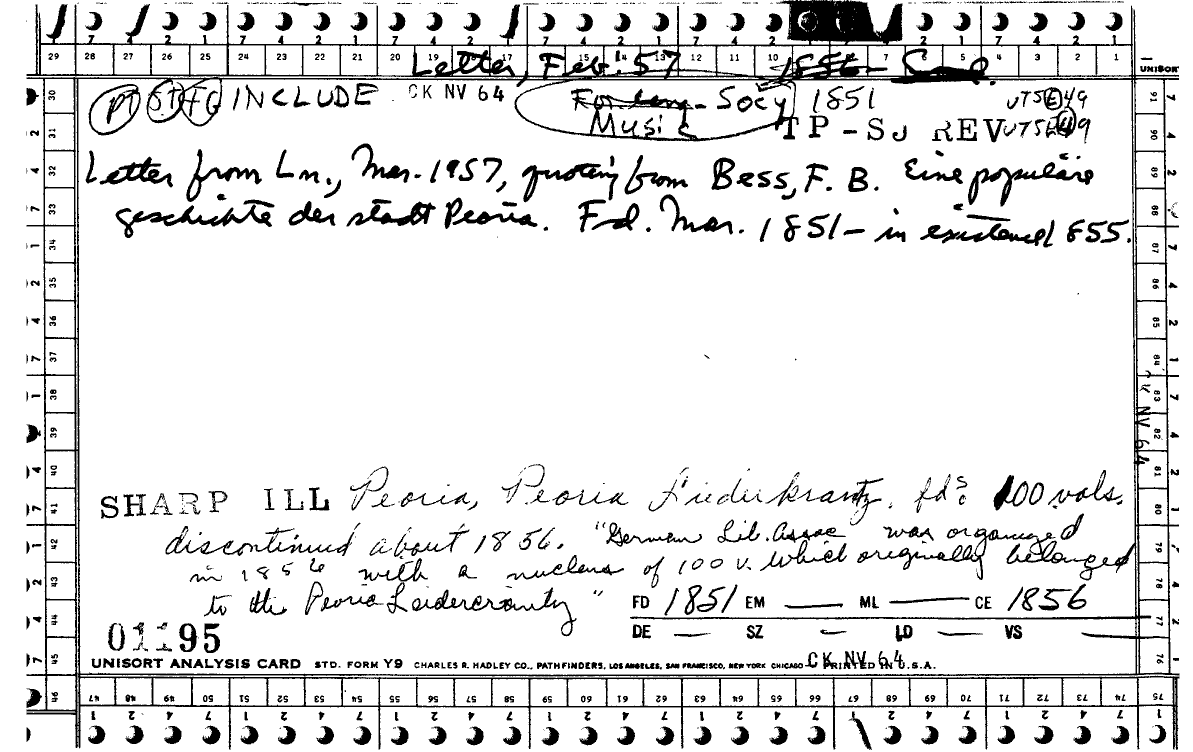 7 4 2 1 7 4 2 1 7 4 2 1 7 4 2 1 7 4 2 1
29 28 27 26 25 24 23 22 21 20 19 18 17 16 15 14 13 12 11 10 9 8 7 6 5 4 3 2 1 UNISORT
Letter, Feb. '57 1856- Soc.
PT ST FG INCLUDE CK NV 64 For. lang. - Socy 1851 UTSE49
Music TP - SJ REV UTSE49
Letter from Ln., Mar. 1957, quoting from Bess, F. B. Eine populäre
geschichte der stadt Peoria. Fd. Mar. 1851 - in existence 1855.
CK NV 64
SHARP ILL Peoria, Peoria Liederkrantz, fd: 100 vols.
discontinued about 1856. "German Lib. Assoc was organized
in 1856 with a nucleus of 100 v. which originally belonged
to the Peoria Leidercrantz"
FD 1851 EM — ML — CE 1856
DE — SZ — LD — VS —
01195
UNISORT ANALYSIS CARD STD. FORM Y9 CHARLES R. HADLEY CO., PATHFINDERS, LOS ANGELES, SAN FRANCISCO, NEW YORK CHICAGO PRINTED IN U.S.A.
CK NV 64
47 48 49 50 51 52 53 54 55 56 57 58 59 60 61 62 63 64 65 66 67 68 69 70 71 72 73 74 75